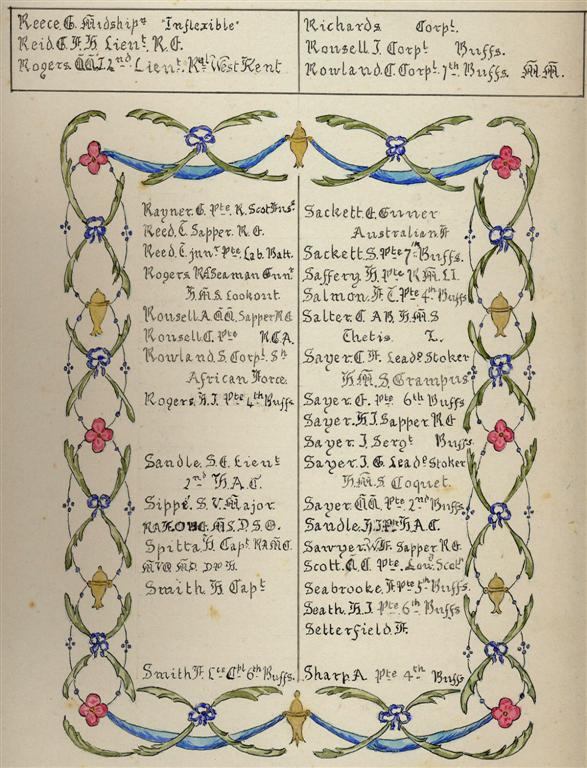 Reece, G. Midshipn "Inflexible"
Reid C. F. H. Lieut. R.E.
Rogers 2nd Lieut. Rl West Kent
Richards Corpt.
Rousell J. Corpt Buffs.
Rowland C. Corpt. 7th Buffs M.M.
Rayner. G. Pte. R. Scot Fus.
Reed. T. Sapper. R.E.
Reed. T. junr Pte Lab. Batt.
Rogers Seaman Gunr
H.M.S Lookout
Rousell A. Sapper R E
Rousell. C. Pte R.G.A.
Rowland. S. Corpt. Sh
African Force.
Rogers, H.J. Pte 4th Buffs
Sandle. S. E. Lieut
2nd H.A.C.
Sippé. S. V. Major.
M.S. D.S.O.
Spitta H. Capt. RAMC.
Smith H Capt
Smith F. Lce Cpl 6th Buffs.
Sackett E Gunner
Australian F
Sackett S. Pte 7th Buffs.
Saffery H. Pte R.M.L.I.
Salmon. F. T. Pte 4th Buffs
Salter C AB H.M.S
Thetis. L.
Sayer. C. F. Leadg Stoker
H.M.S. Grampus
Sayer. G. Pte 6th Buffs
Sayer. H J. Sapper R E
Sayer. J. Sergt Buffs.
Sayer. J. G. Leadg Stoker
H.M.S Coquet.
Sayer Pte 2nd Buffs
Sandle. H.J Pte H.A.C.
Sawyer. W.F. Sapper R.E.
Scott. A. C. Pte Low. Scot
Seabrooke. F. Pte 5th Buffs.
Seath. H. J. Pte. 6th Buffs
Setterfield. F.
Sharp A Pte 4th Buffs